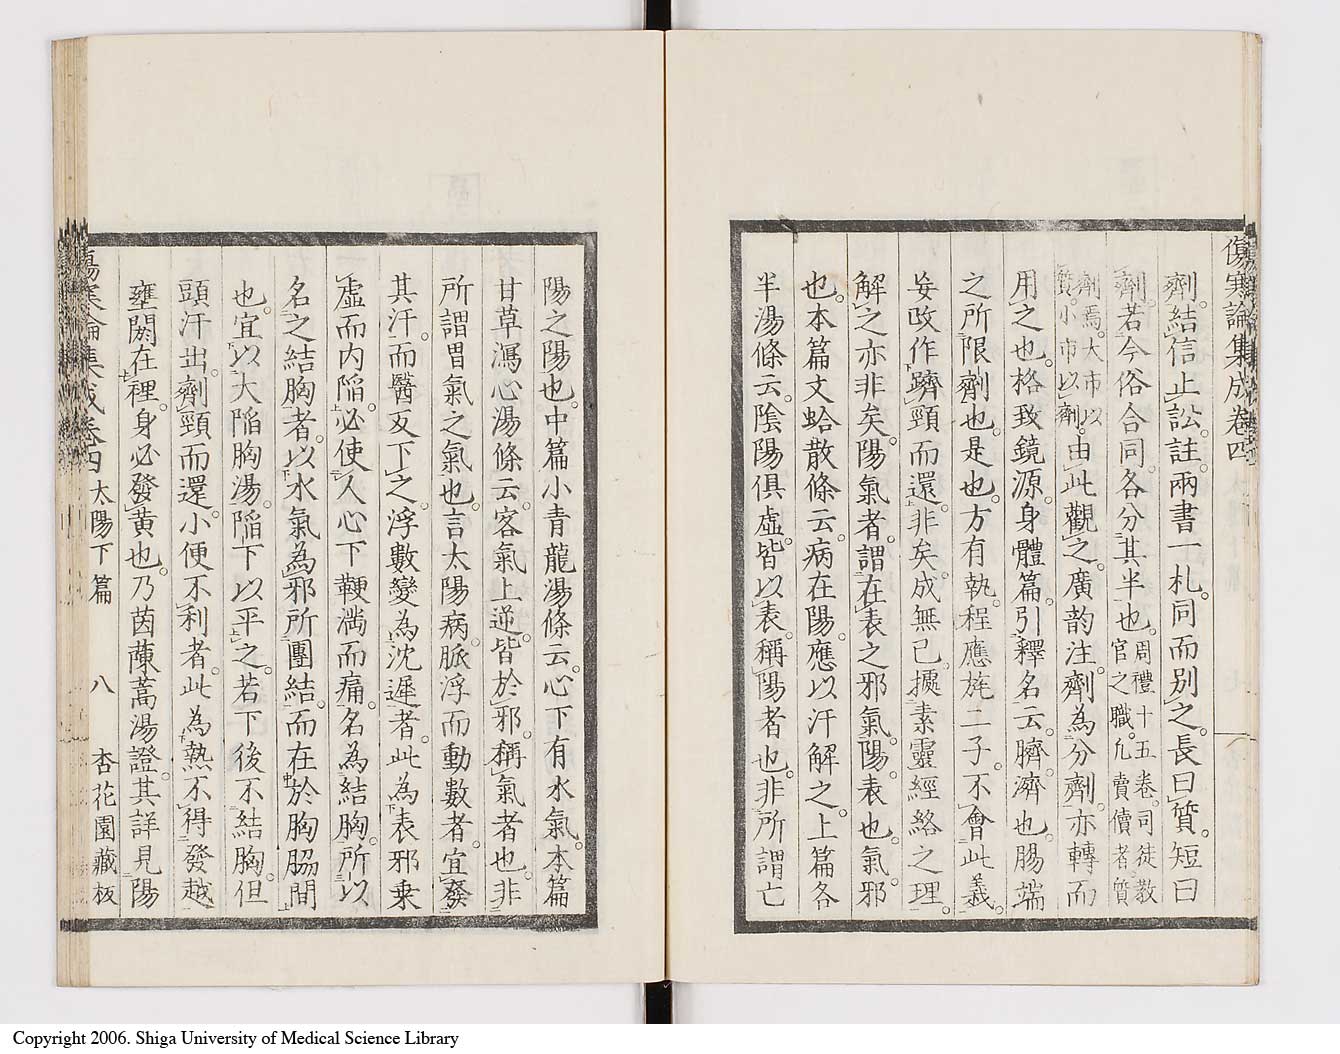 傷寒論集成卷四
劑結信止訟註兩書一札同而別之長曰質短曰
劑若今俗合同各分其半也周禮十五卷司徒教官之職凡賣儥者質
劑焉大市以質小市以劑由此觀之廣韵注劑為分劑亦轉而
用之也格致鏡源身體篇引釋名云臍濟也腸端
之所限劑也是也方有執程應旄二子不會此義
妄改作躋頸而還非矣成無己據素靈經絡之理
解之亦非矣陽氣者謂在表之邪氣陽表也氣邪
也本篇文蛤散條云病在陽應以汗解之上篇各
半湯條云陰陽俱虛皆以表稱陽者也非所謂亡
陽之陽也中篇小青龍湯條云心下有水氣本篇
甘草瀉心湯條云客氣上逆皆於邪稱氣者也非
所謂胃氣之氣也言太陽病脈浮而動數者宜發
其汗而醫反下之浮數變為沈遲者此為表邪乗
虛而內陷必使人心下鞕満而痛名為結胸所以
名之結胸者以水氣為邪所團結而在於胸脇間
也宜以大陷胸湯陷下以平之若下後不結胸但
頭汗出劑頸而還小便不利者此為熱不得發越
壅閼在裡身必發黄也乃茵蔯蒿湯證其詳見陽
傷寒論集成卷四 太陽下篇 八 杏花園藏板
Copyright 2006. Shiga University of Medical Science Library